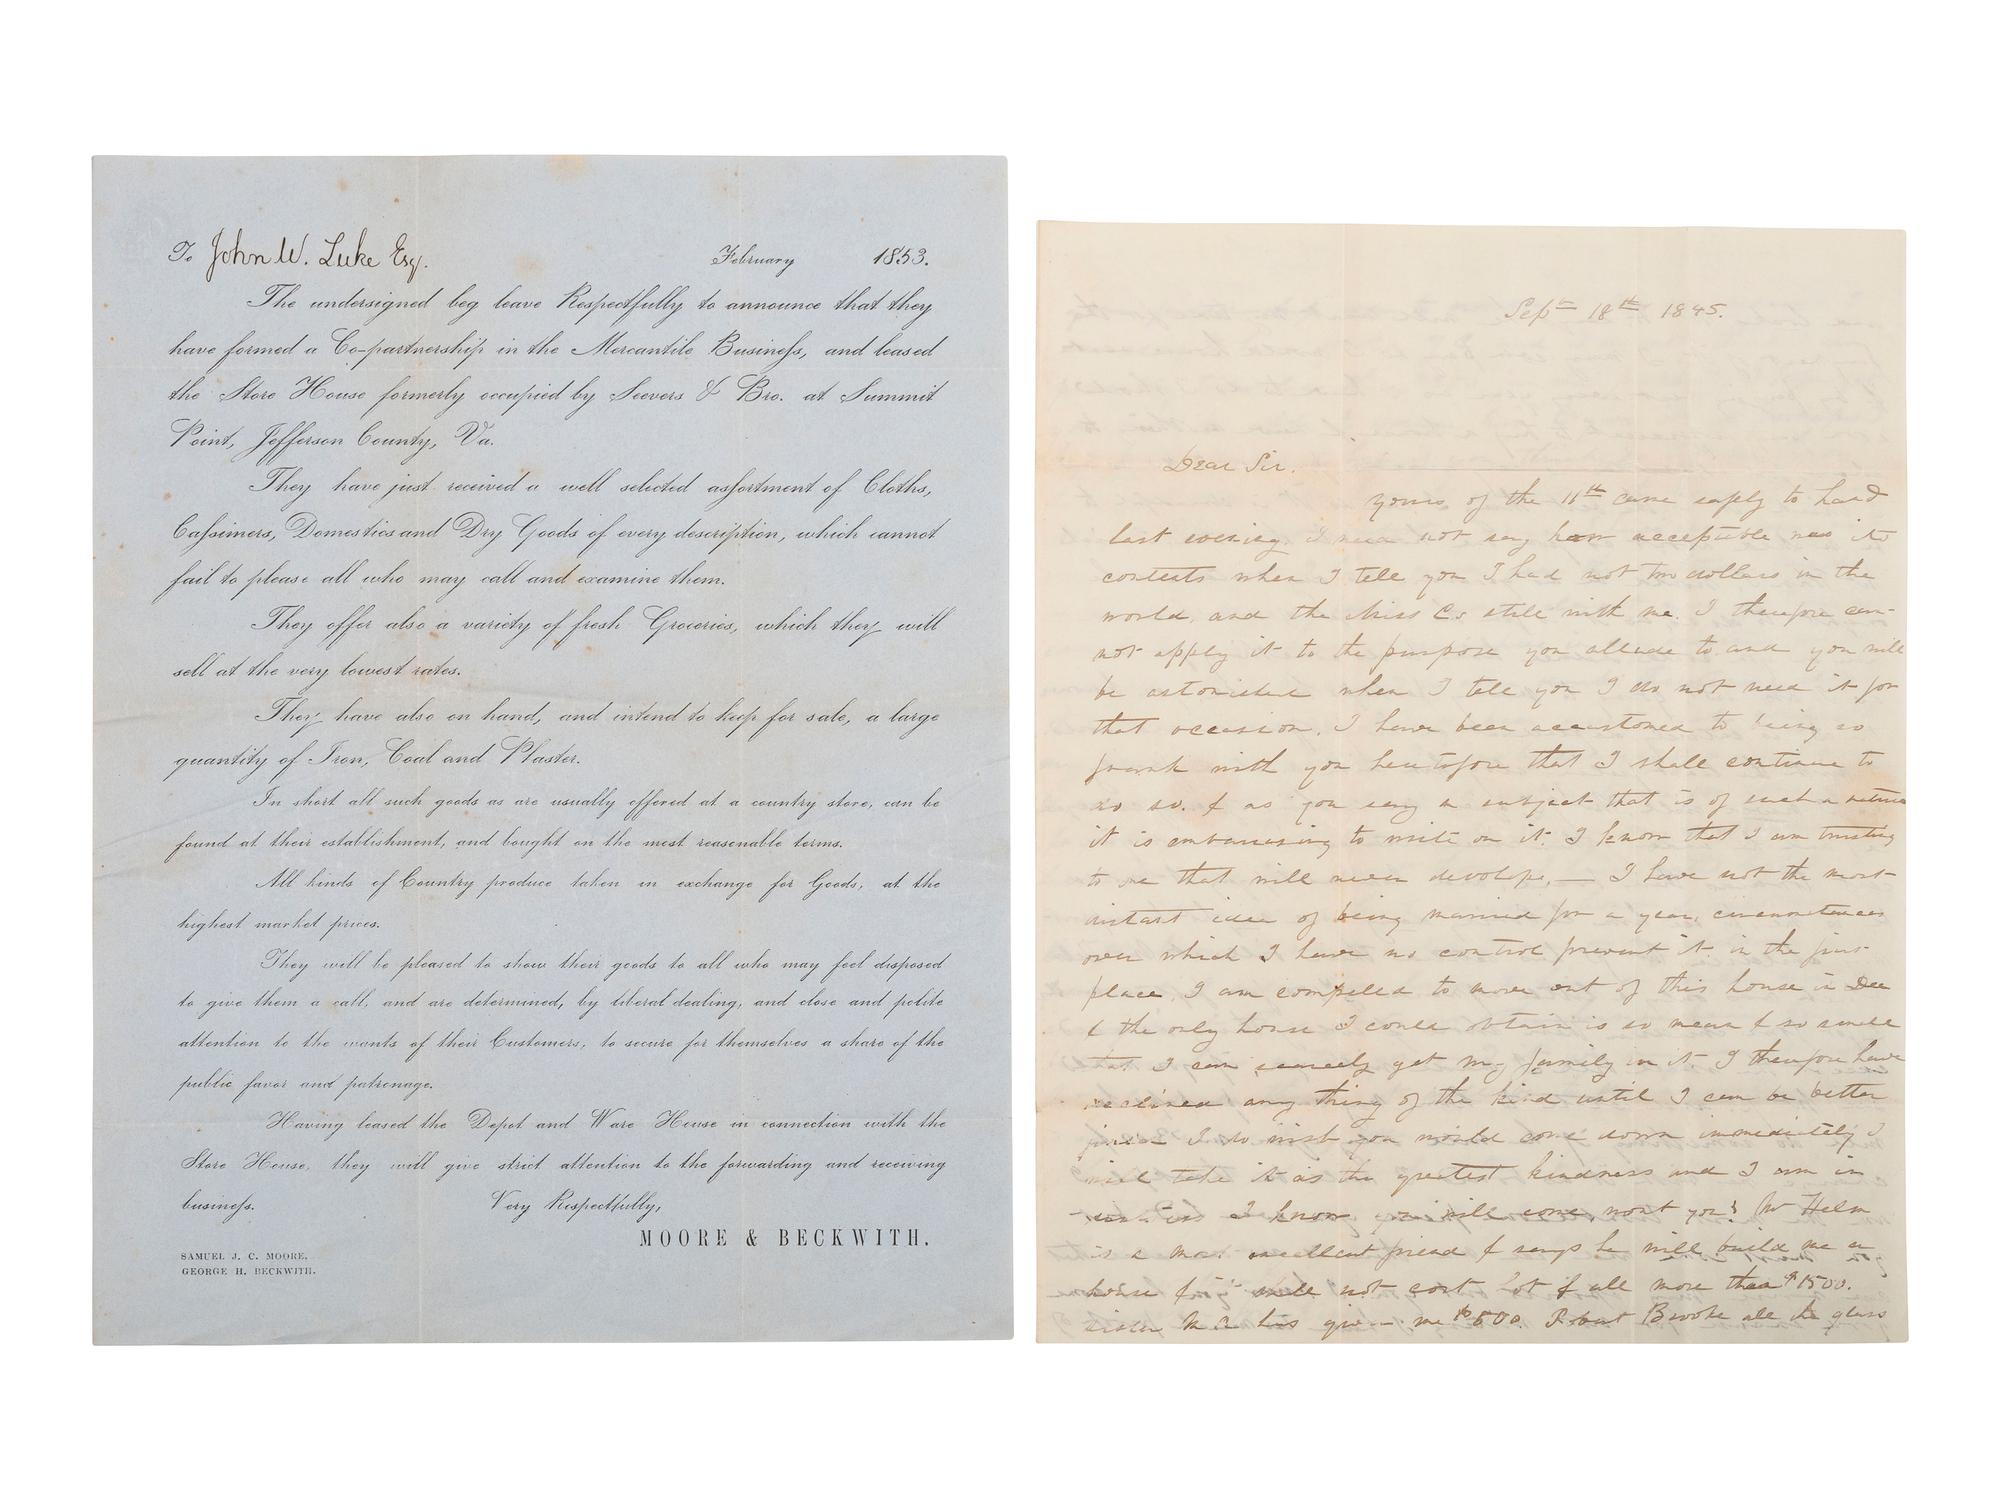 To John W. Luke Esq. February 1853.
The undersigned beg leave Respectfully to announce that they
have formed a Co-partnership in the Mercantile Business, and leased
the Store House formerly occupied by Seevers & Bro. at Summit
Point, Jefferson County, Va.
They have just received a well selected assortment of Cloths,
Cassimers, Domestics and Dry Goods of every description, which cannot
fail to please all who may call and examine them.
They offer also a variety of fresh Groceries, which they will
sell at the very lowest rates.
They have also on hand, and intend to keep for sale, a large
quantity of Iron, Coal and Plaster.
In short all such goods as are usually offered at a country store, can be
found at their establishment, and bought on the most reasonable terms.
All kinds of Country produce taken in exchange for Goods, at the
highest market prices.
They will be pleased to show their goods to all who may feel disposed
to give them a call, and are determined, by liberal dealing, and close and polite
attention to the wants of their Customers, to secure for themselves a share of the
public favor and patronage.
Having leased the Depot and Ware House in connection with the
Store House, they will give strict attention to the forwarding and receiving
business. Very Respectfully,
MOORE & BECKWITH.
SAMUEL J. C. MOORE.
GEORGE H. BECKWITH.
Sept 18th 1845.
Dear Sir.
Yours of the 11th came safely to hand
last evening. I need not say how acceptable was its
contents when I tell you I had not two dollars in the
world, and the Miss Cs still with me. I therefore can-
not apply it to the purpose you allude to and you will
be astonished when I tell you I do not need it for
that occasion. I have been accustomed to being so
frank with you heretofore that I shall continue to
do so. & as you say a subject that is of such a nature
it is embarrassing to write on it. I know that I am trusting
to one that will never develope. — I have not the most
distant idea of being married for a year, circumstances
over which I have no control prevent it. in the first
place, I am compelled to move out of this house in Dec
& the only house I could obtain is so mean & so small
that I can scarcely get my family in it. I therefore have
declined any thing of the kind until I can be better
I do wish you would come down immediately I
will take it as the greatest kindness and I am in
I know you will come, wont you? Mr Helm
is a most excellent friend & says he will build me a
house & will not cost Lot & all more than $1500.
sister M A has given me $500. Robert Brooke all the glass